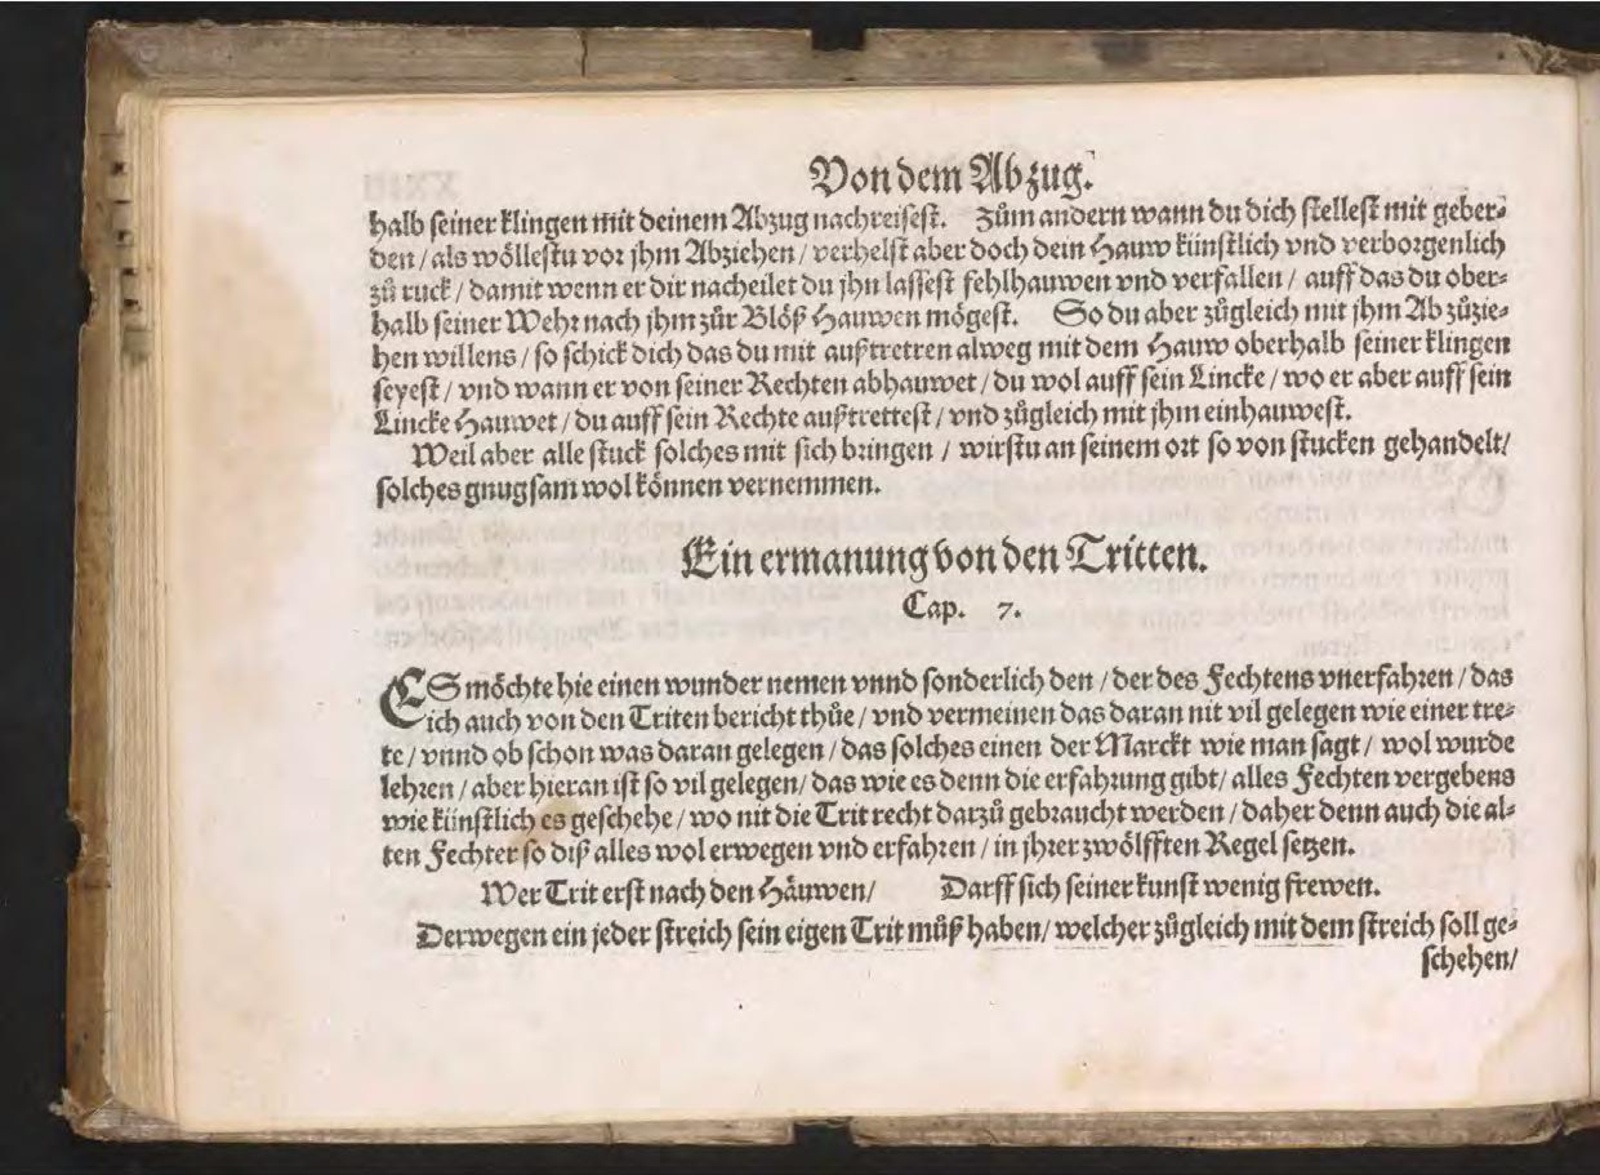 Von dem Abzug.
halb seiner klingen mit deinem Abzug nachreisest. Zům andern wann du dich stellest mit geber⸗
den / als wöllestu vor jhm Abziehen / verhelst aber doch dein Hauw künstlich vnd verborgenlich
zů ruck / damit wenn er dir nacheilet du jhn lassest fehlhauwen vnd verfallen / auff das du ober⸗
halb seiner Wehr nach jhm zůr Blöß Hauwen mögest. So du aber zůgleich mit jhm Ab zůzie⸗
hen willens / so schick dich das du mit außtretren alweg mit dem Hauw oberhalb seiner klingen
seyest / vnd wann er von seiner Rechten abhauwet / du wol auff sein Lincke / wo er aber auff sein
Lincke Hauwet / du auff sein Rechte außtrettest / vnd zůgleich mit jhm einhauwest.
Weil aber alle stuck solches mit sich bringen / wirstu an seinem ort so von stucken gehandelt /
solches gnugsam wol können vernemmen.
Ein ermanung von den Tritten.
Cap. 7.
ES möchte hie einen wunder nemen vnnd sonderlich den / der des Fechtens vnerfahren / das
ich auch von den Triten bericht thůe / vnd vermeinen das daran nit vil gelegen wie einer tre⸗
te / vnnd ob schon was daran gelegen / das solches einen der Marckt wie man sagt / wol wurde
lehren / aber hieran ist so vil gelegen / das wie es denn die erfahrung gibt / alles Fechten vergebens
wie künstlich es geschehe / wo nit die Trit recht darzů gebraucht werden / daher denn auch die al⸗
ten Fechter so diß alles wol erwegen vnd erfahren / in jhrer zwölfften Regel setzen.
Wer Trit erst nach den Häuwen / Darff sich seiner kunst wenig frewen.
Derwegen ein jeder streich sein eigen Trit můß haben / welcher zůgleich mit dem streich soll ge⸗
schehen /